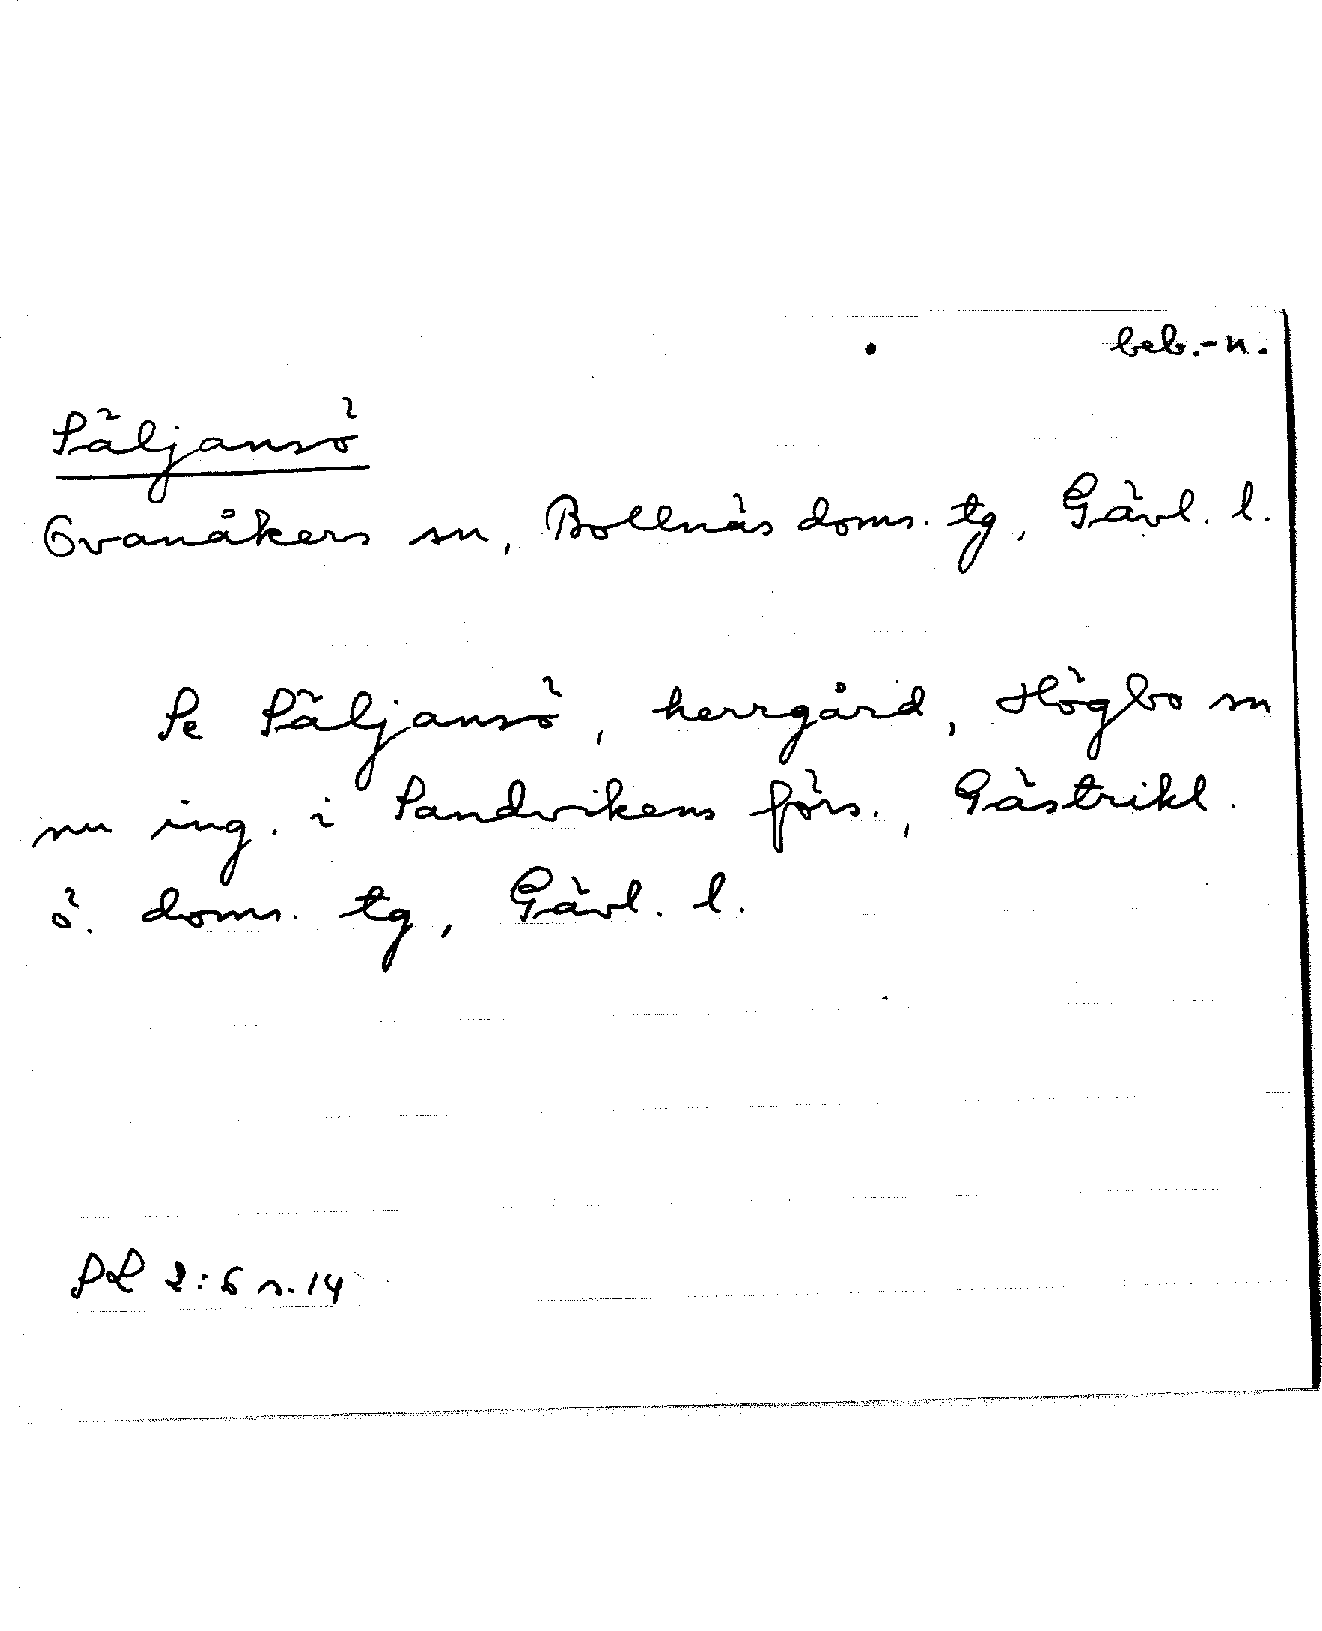 beb.-n.
Säljansö
Ovanåkers sn, Bollnäs doms. tg, Gävl. l.
Se Säljansö, herrgård, Högbo sn
nu ing. i Sandvikens förs., Gästrikl.
ö. doms. tg, Gävl. l.
SL 2:6 s. 14